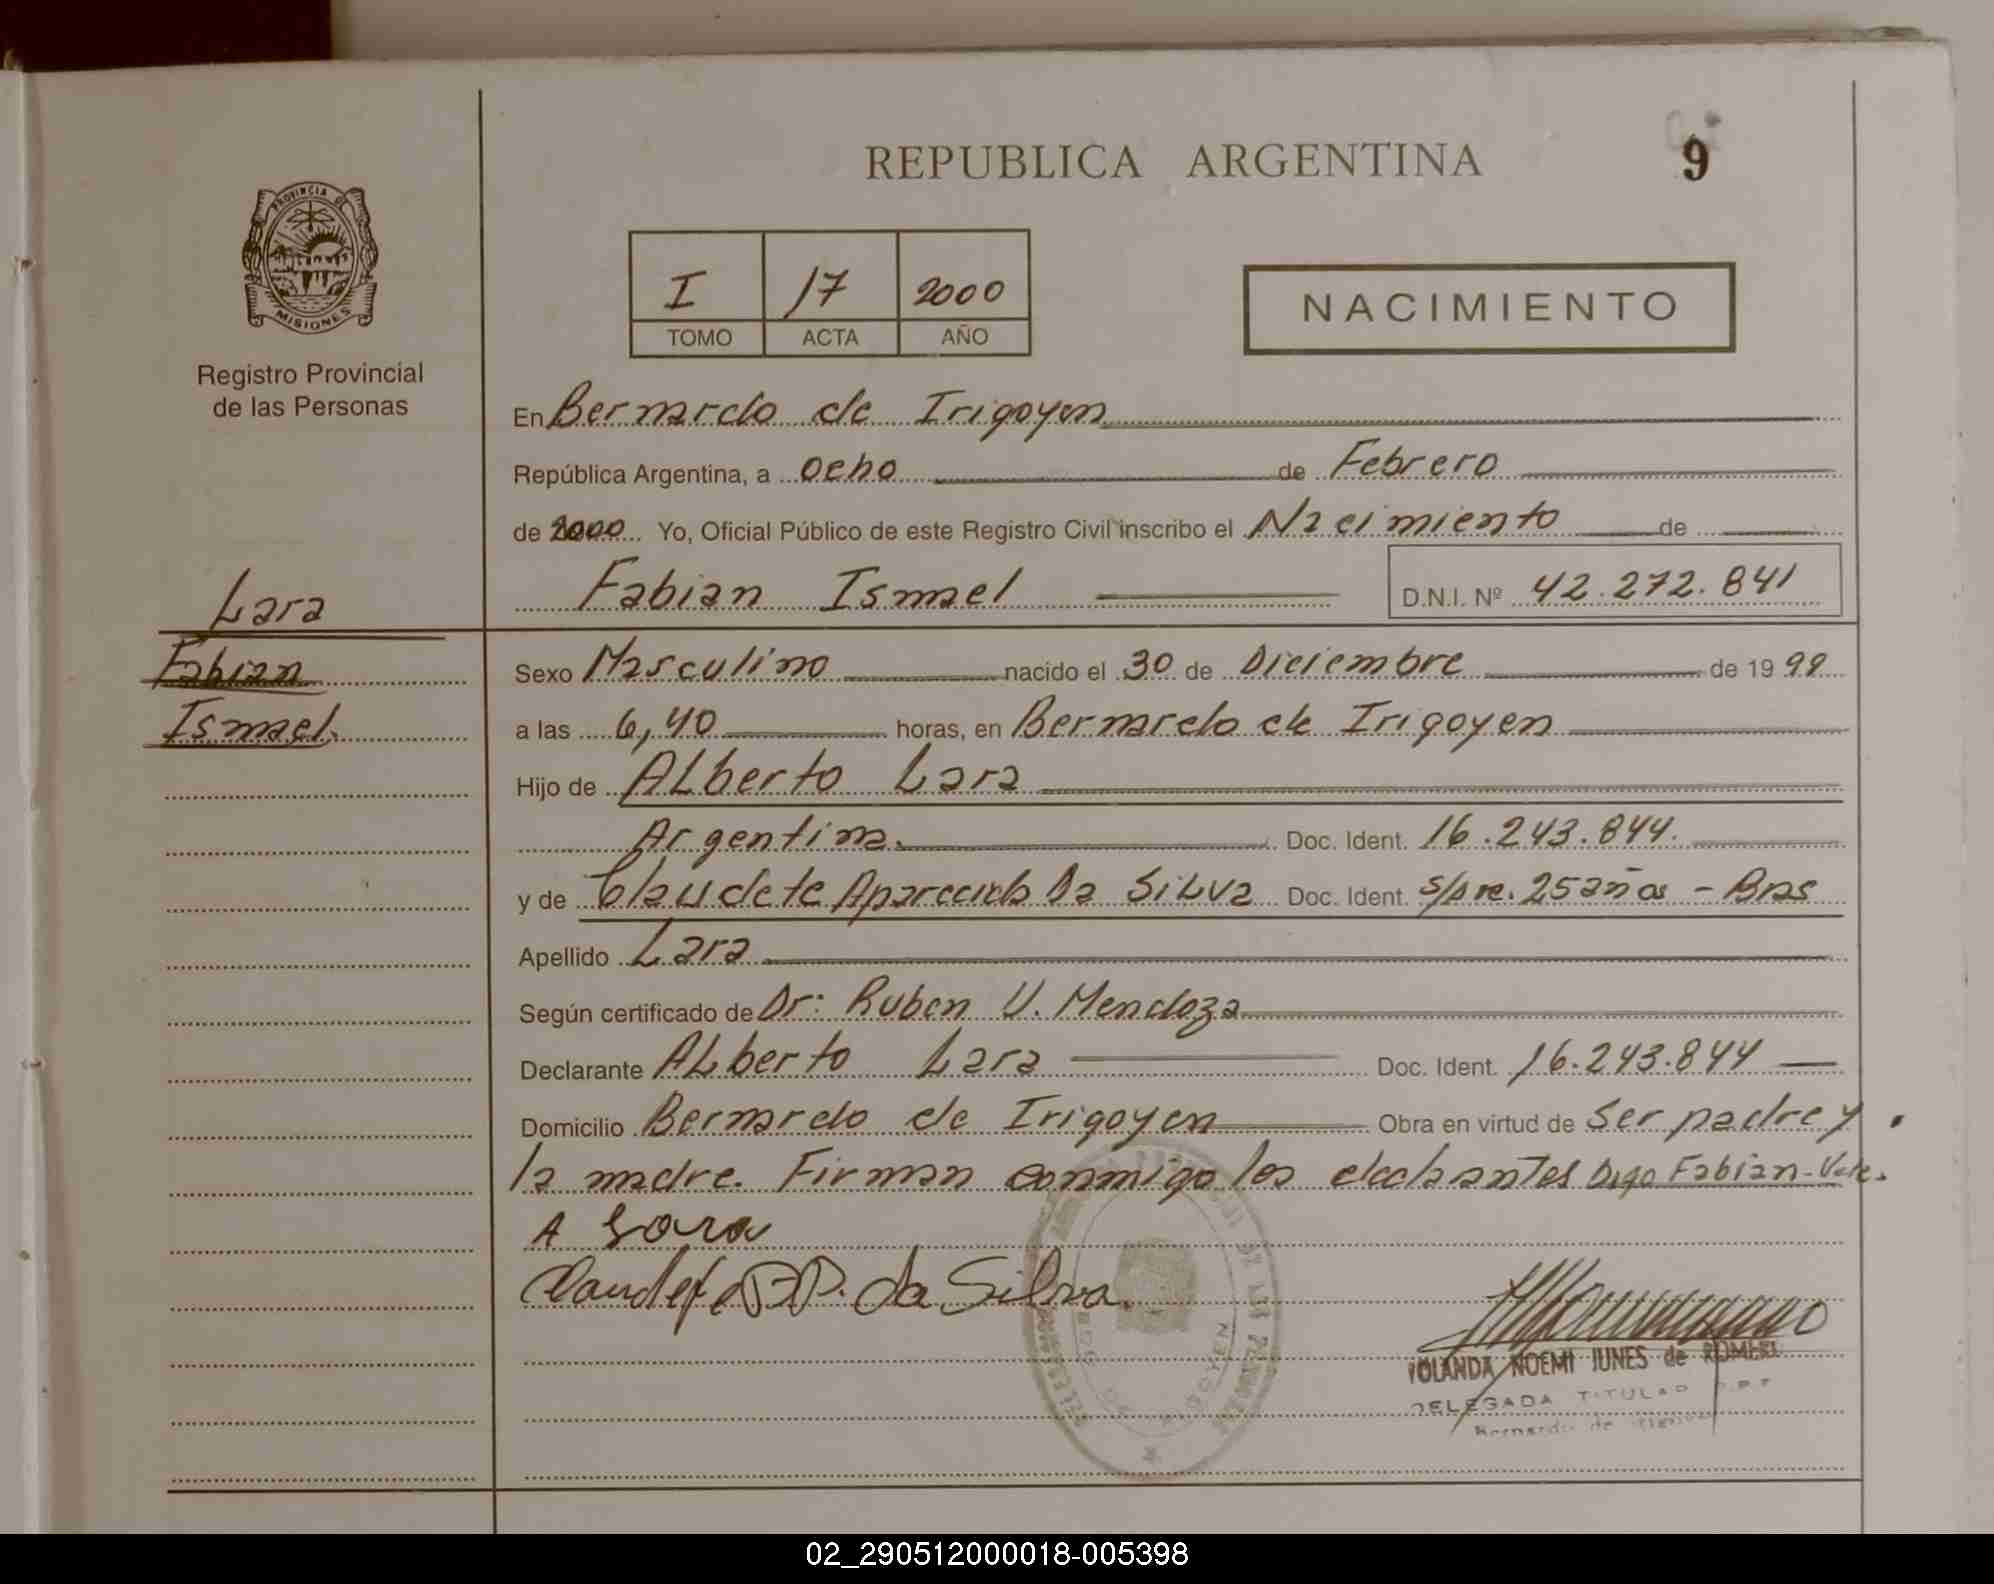 REPUBLICA ARGENTINA
9
PROVINCIA DE
MISIONES
Registro Provincial
de las Personas
I 17 2000
TOMO ACTA AÑO
NACIMIENTO
En Bernardo de Irigoyen
República Argentina, a ocho de Febrero
de 2000 Yo, Oficial Público de este Registro Civil inscribo el Nacimiento de
Fabian Ismael D.N.I. Nº 42.272.841
Lara
Fabian
Ismael.
Sexo Masculino nacido el 30 de Diciembre de 19 99
a las 6,40 horas, en Bernardo de Irigoyen
Hijo de ALberto Lara
Argentina. Doc. Ident. 16.243.844.
y de Claudete Aparecida Da SiLva Doc. Ident. 25 años - Bras
Apellido Lara
Según certificado de Dr: Ruben V. Mendoza
Declarante ALberto Lara Doc. Ident. 16.243.844
Domicilio Bernardo de Irigoyen Obra en virtud de ser padre y
la madre. Firman conmigo los declarantes Digo Fabian-Vale.
A Lara
Claudete da Silva.
YOLANDA NOEMI JUNES de ROMERO
DELEGADA TITULAR
Bernardo de Irigoyen
02_290512000018-005398